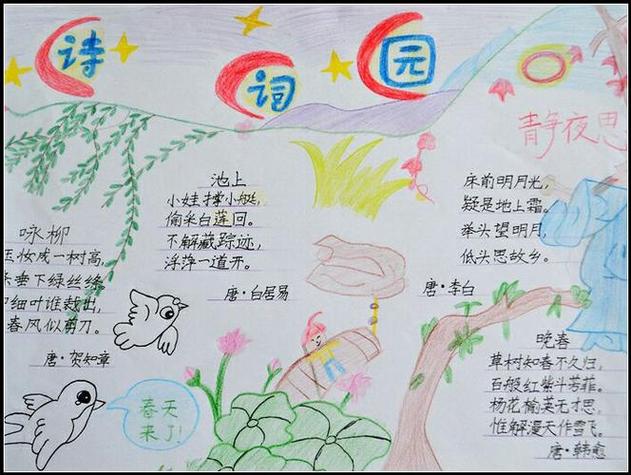 诗词园
静夜思
床前明月光,
疑是地上霜。
举头望明月,
低头思故乡。
唐·李白
池上
小娃撑小艇,
偷采白莲回。
不解藏踪迹,
浮萍一道开。
唐·白居易
咏柳
玉妆成一树高,
条垂下绿丝绦。
细叶谁裁出,
春风似剪刀。
唐·贺知章
春天
来了!
晚春
草树知春不久归,
百般红紫斗芳菲。
杨花榆荚无才思,
惟解漫天作雪飞。
唐·韩愈